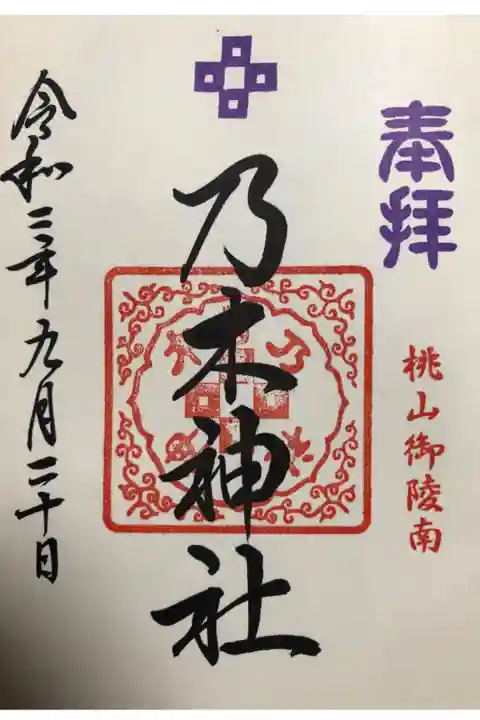 奉拝
桃山御陵南
乃木神社
令和三年九月二十日